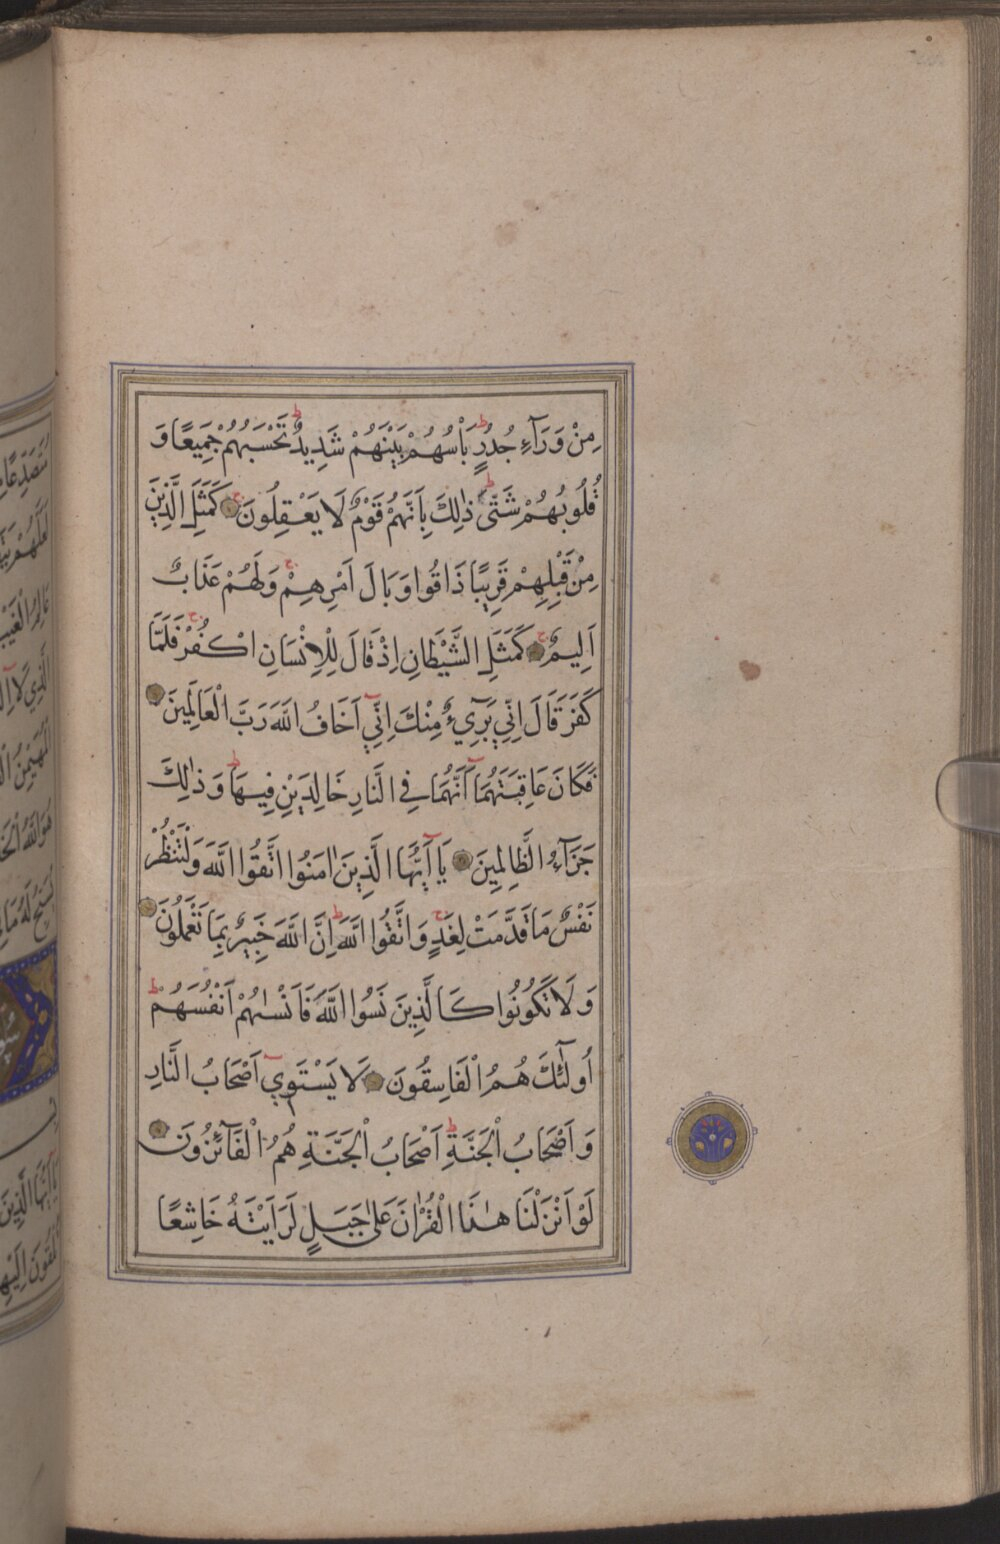 مِنْ وَرَآءِ جُدُرٍ بَاْسُهُمْ بَيْنَهُمْ شَدِيدٌ تَحْسَبُهُمْ جَمِيعًا وَ
قُلُوبُهُمْ شَتّٰى ذٰلِكَ بِاَنَّهُمْ قَوْمٌ لَا يَعْقِلُونَ كَمَثَلِ الَّذِينَ
مِنْ قَبْلِهِمْ قَرِيبًا ذَاقُوا وَبَالَ اَمْرِهِمْ وَلَهُمْ عَذَابٌ
اَلِيمٌ كَمَثَلِ الشَّيْطَانِ اِذْ قَالَ لِلْاِنْسَانِ اكْفُرْ فَلَمَّا
كَفَرَ قَالَ اِنِّي بَرِيٓءٌ مِنْكَ اِنِّيٓ اَخَافُ اللّٰهَ رَبَّ الْعَالَمِينَ
فَكَانَ عَاقِبَتَهُمَآ اَنَّهُمَا فِي النَّارِ خَالِدَيْنِ فِيهَا وَذٰلِكَ
جَزَآءُ الظَّالِمِينَ يَآ اَيُّهَا الَّذِينَ اٰمَنُوا اتَّقُوا اللّٰهَ وَلْتَنْظُرْ
نَفْسٌ مَا قَدَّمَتْ لِغَدٍ وَاتَّقُوا اللّٰهَ اِنَّ اللّٰهَ خَبِيرٌ بِمَا تَعْمَلُونَ
وَلَا تَكُونُوا كَالَّذِينَ نَسُوا اللّٰهَ فَاَنْسٰيهُمْ اَنْفُسَهُمْ
اُولٰٓئِكَ هُمُ الْفَاسِقُونَ لَا يَسْتَوِيٓ اَصْحَابُ النَّارِ
وَاَصْحَابُ الْجَنَّةِ اَصْحَابُ الْجَنَّةِ هُمُ الْفَآئِزُونَ
لَوْ اَنْزَلْنَا هٰذَا الْقُرْاٰنَ عَلٰى جَبَلٍ لَرَاَيْتَهُ خَاشِعًا